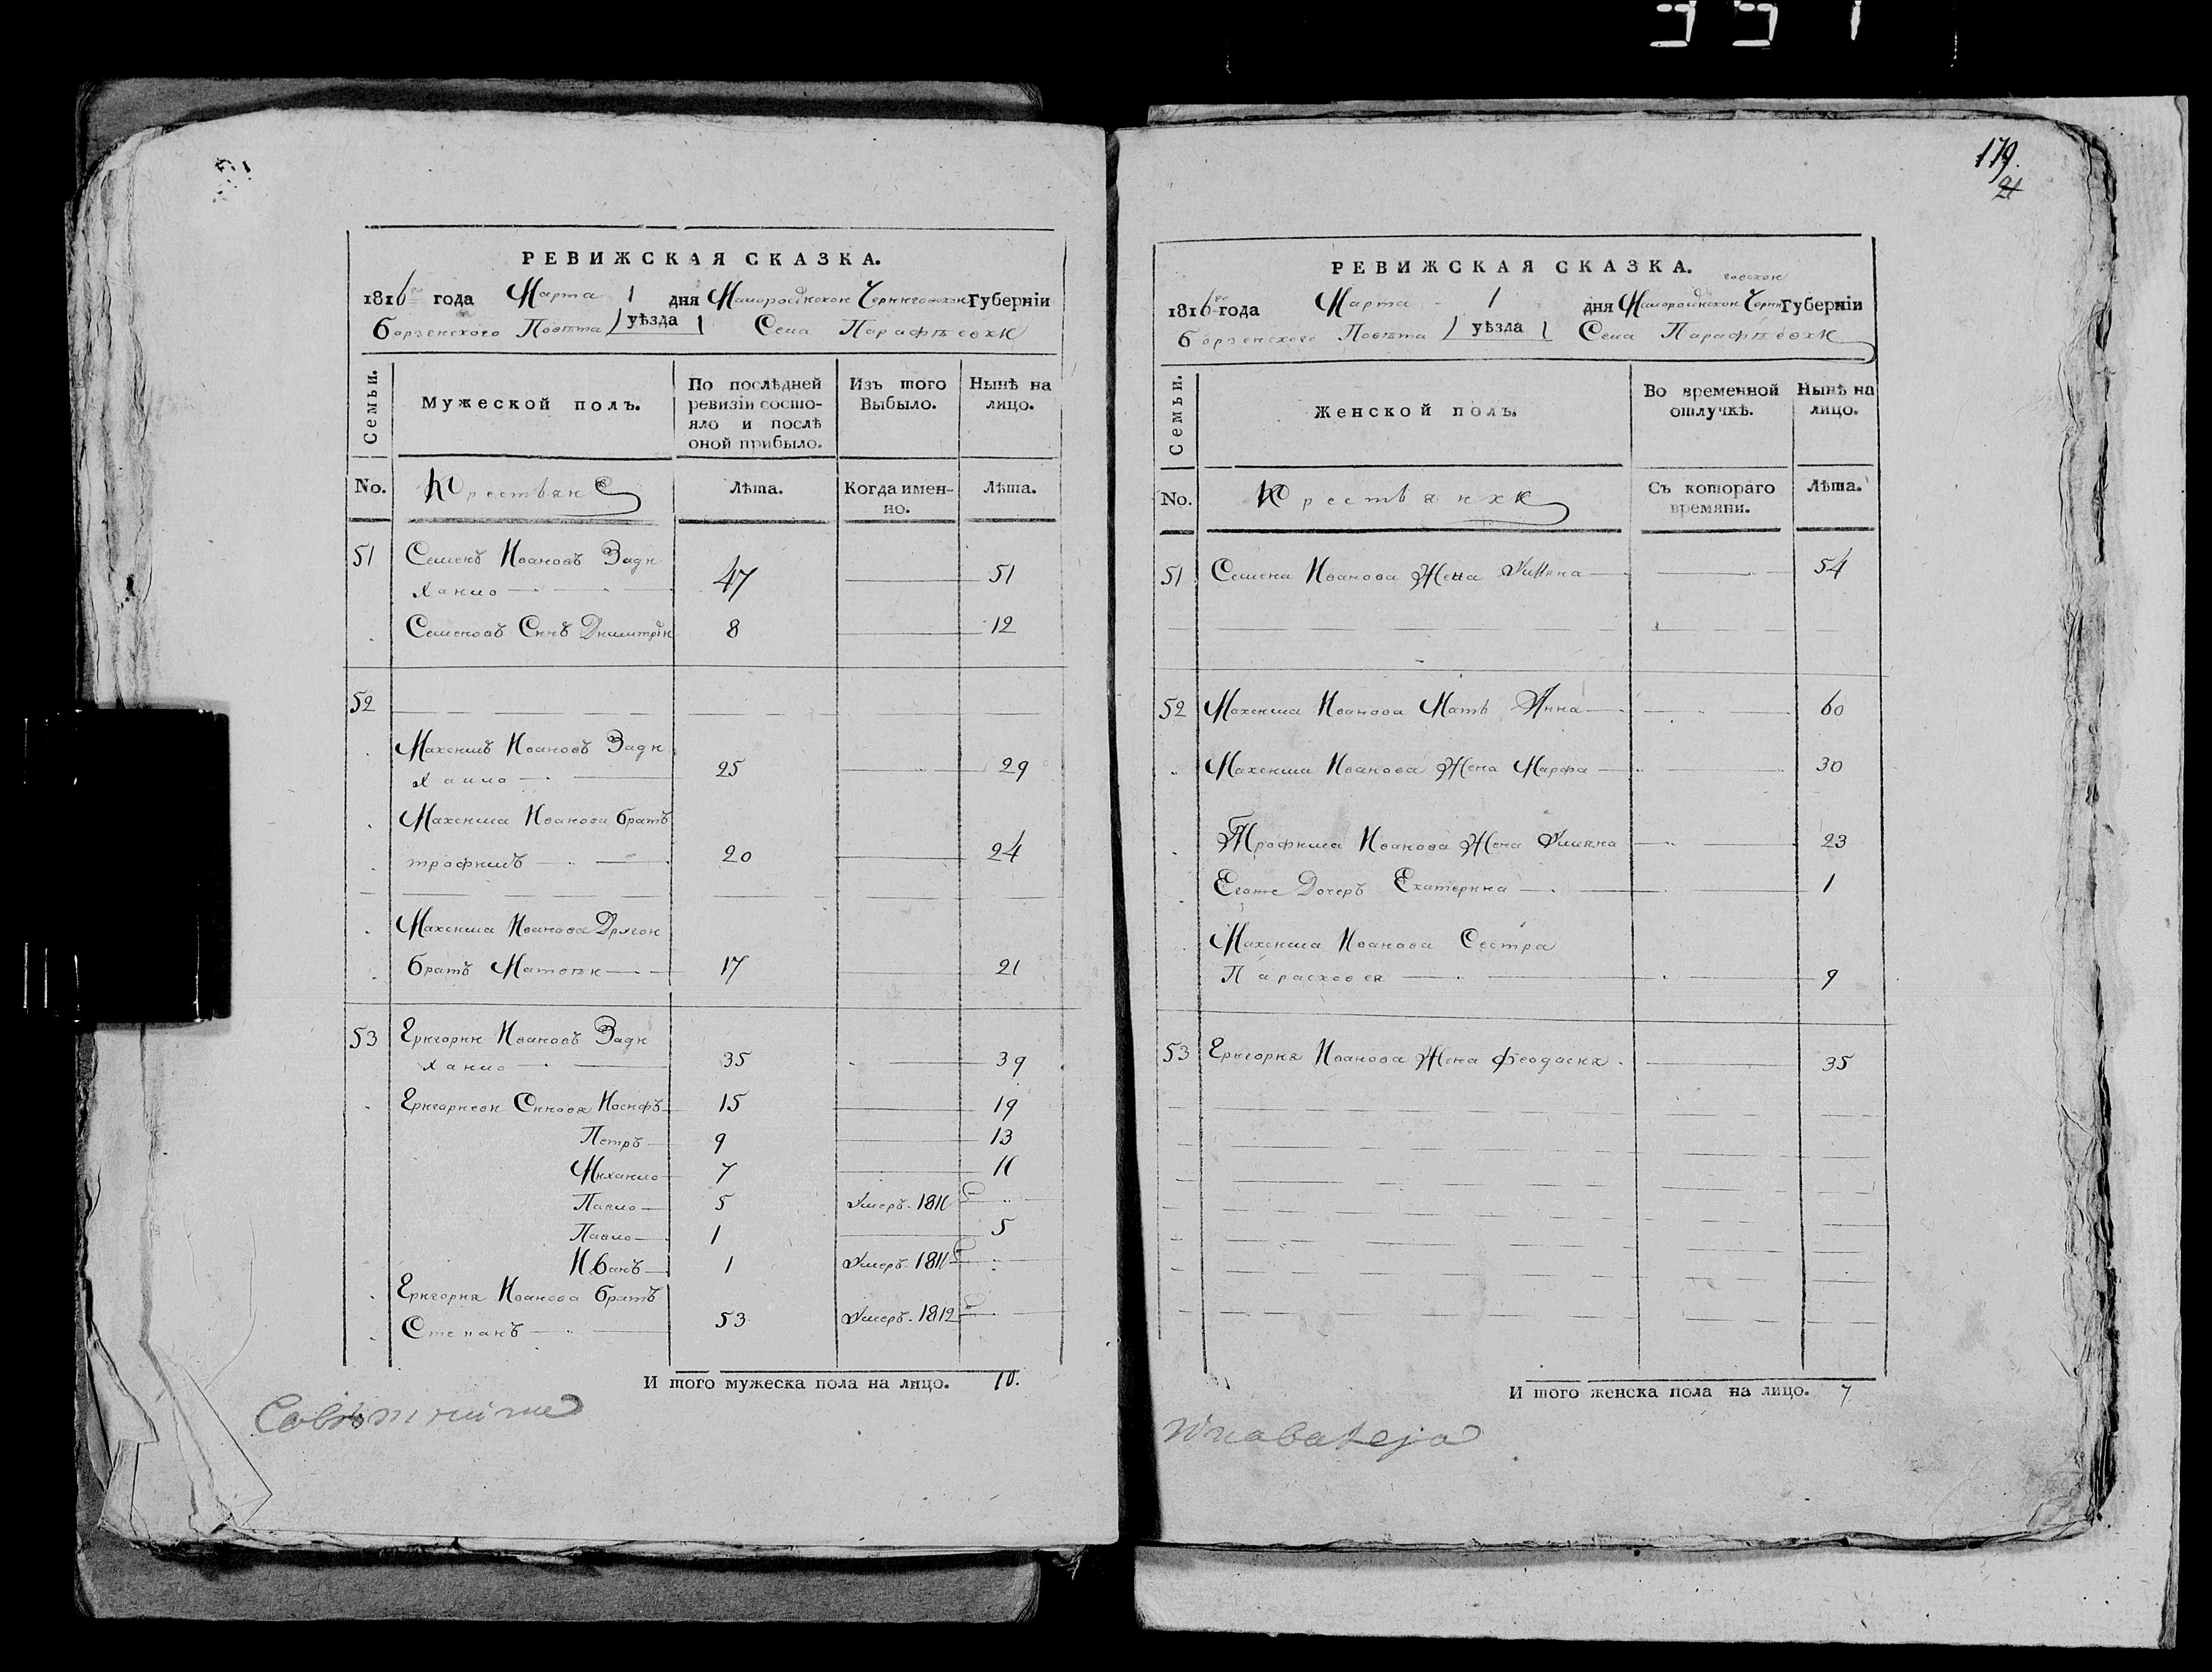 РЕВИЖСКАЯ СКАЗКА.
1816го года Марта 1 дня Малоросійской Черниговской Губерніи
Борзенского Повѣта уѣзда Села Парафѣевки
Семьи. Мужеской полъ. По послѣдней ревизіи состояло и послѣ оной прибыло. Изъ того Выбыло. Нынѣ на лицо.
No. Крестьяне Лѣта. Когда именно. Лѣта.
51 Семенъ Ивановъ Задихаило 47 51
Семеновъ Синъ Димитрій 8 12
52
Максимъ Ивановъ Задихаило 25 29
Максима Иванова братъ
трофимъ 20 24
Максима Иванова Другои
братъ Матвѣи 17 21
53 Григории Ивановъ Задихаило 35 39
Григориеви Синовя Иосифъ 15 19
Петръ 9 13
Михаило 7 11
Павло 5 Умеръ 1811
Павло 1 5
Иванъ 1 Умеръ 1811
Григория Иванова братъ
Степанъ 53 Умеръ 1812
И того мужеска пола на лицо. 10.
179.
21
РЕВИЖСКАЯ СКАЗКА.
1816го года Марта 1 дня Малоросійской Черниговской Губерніи
Борзенского Повѣта уѣзда Села Парафѣевки
Семьи. Женской полъ. Во временной отлучкѣ. Нынѣ на лицо.
No. Крестьянки Съ котораго времяни. Лѣта.
51 Семена Иванова Жена Уляна 54
52 Максима Иванова Мать Анна 60
Максима Иванова Жена Марфа 30
Трофима Иванова Жена Уляна 23
Егоже Дочеръ Екатерина 1
Максима Иванова Сестра
Парасковея 9
53 Григория Иванова Жена Феодосия 35
И того женска пола на лицо. 7